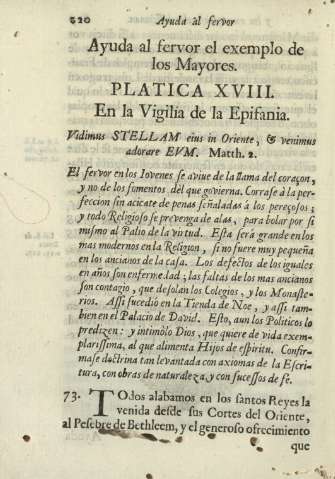 220 Ayuda al fervor
Ayuda al fervor el exemplo de
los Mayores.
PLATICA XVIII.
En la Vigilia de la Epifania.
Vidimus STELLAM eius in Oriente, & venimus
adorare EVM. Matth. 2.
El fervor en los Iovenes se aviue de la llama del coraçon,
y no de los fomentos del que govierna. Corrase à la per-
feccion sin acicate de penas señaladas à los pereçosos;
y todo Religioso se prevenga de alas, para bolar por si
mismo al Palio de la virtud. Esta será grande en los
mas modernos en la Religion, si no fuere muy pequeña
en los ancianos de la casa. Los defectos de los iguales
en años son enfermedad; las faltas de los mas ancianos
son contagio, que desolan los Colegios, y los Monaste-
rios. Assi sucediò en la Tienda de Noe, y assi tam-
bien en el Palacio de David. Esto, aun los Politicos lo
predizen: y intimòlo Dios, que quiere de vida exem-
plarissima, al que alimenta Hijos de espiritu. Confir-
mase doctrina tan levantada con axiomas de la Escri-
tura, con obras de naturaleza, y con sucessos de fe.
73. TOdos alabamos en los santos Reyes la
venida desde sus Cortes del Oriente,
al Pesebre de Bethleem, y el generoso ofrecimiento
que